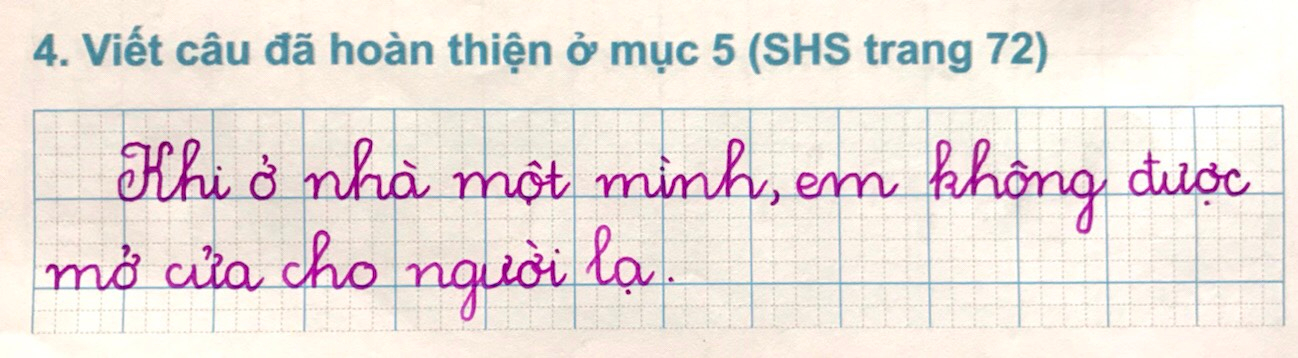 4. Viết câu đã hoàn thiện ở mục 5 (SHS trang 72)
Khi ở nhà một mình, em không được
mở cửa cho người lạ.